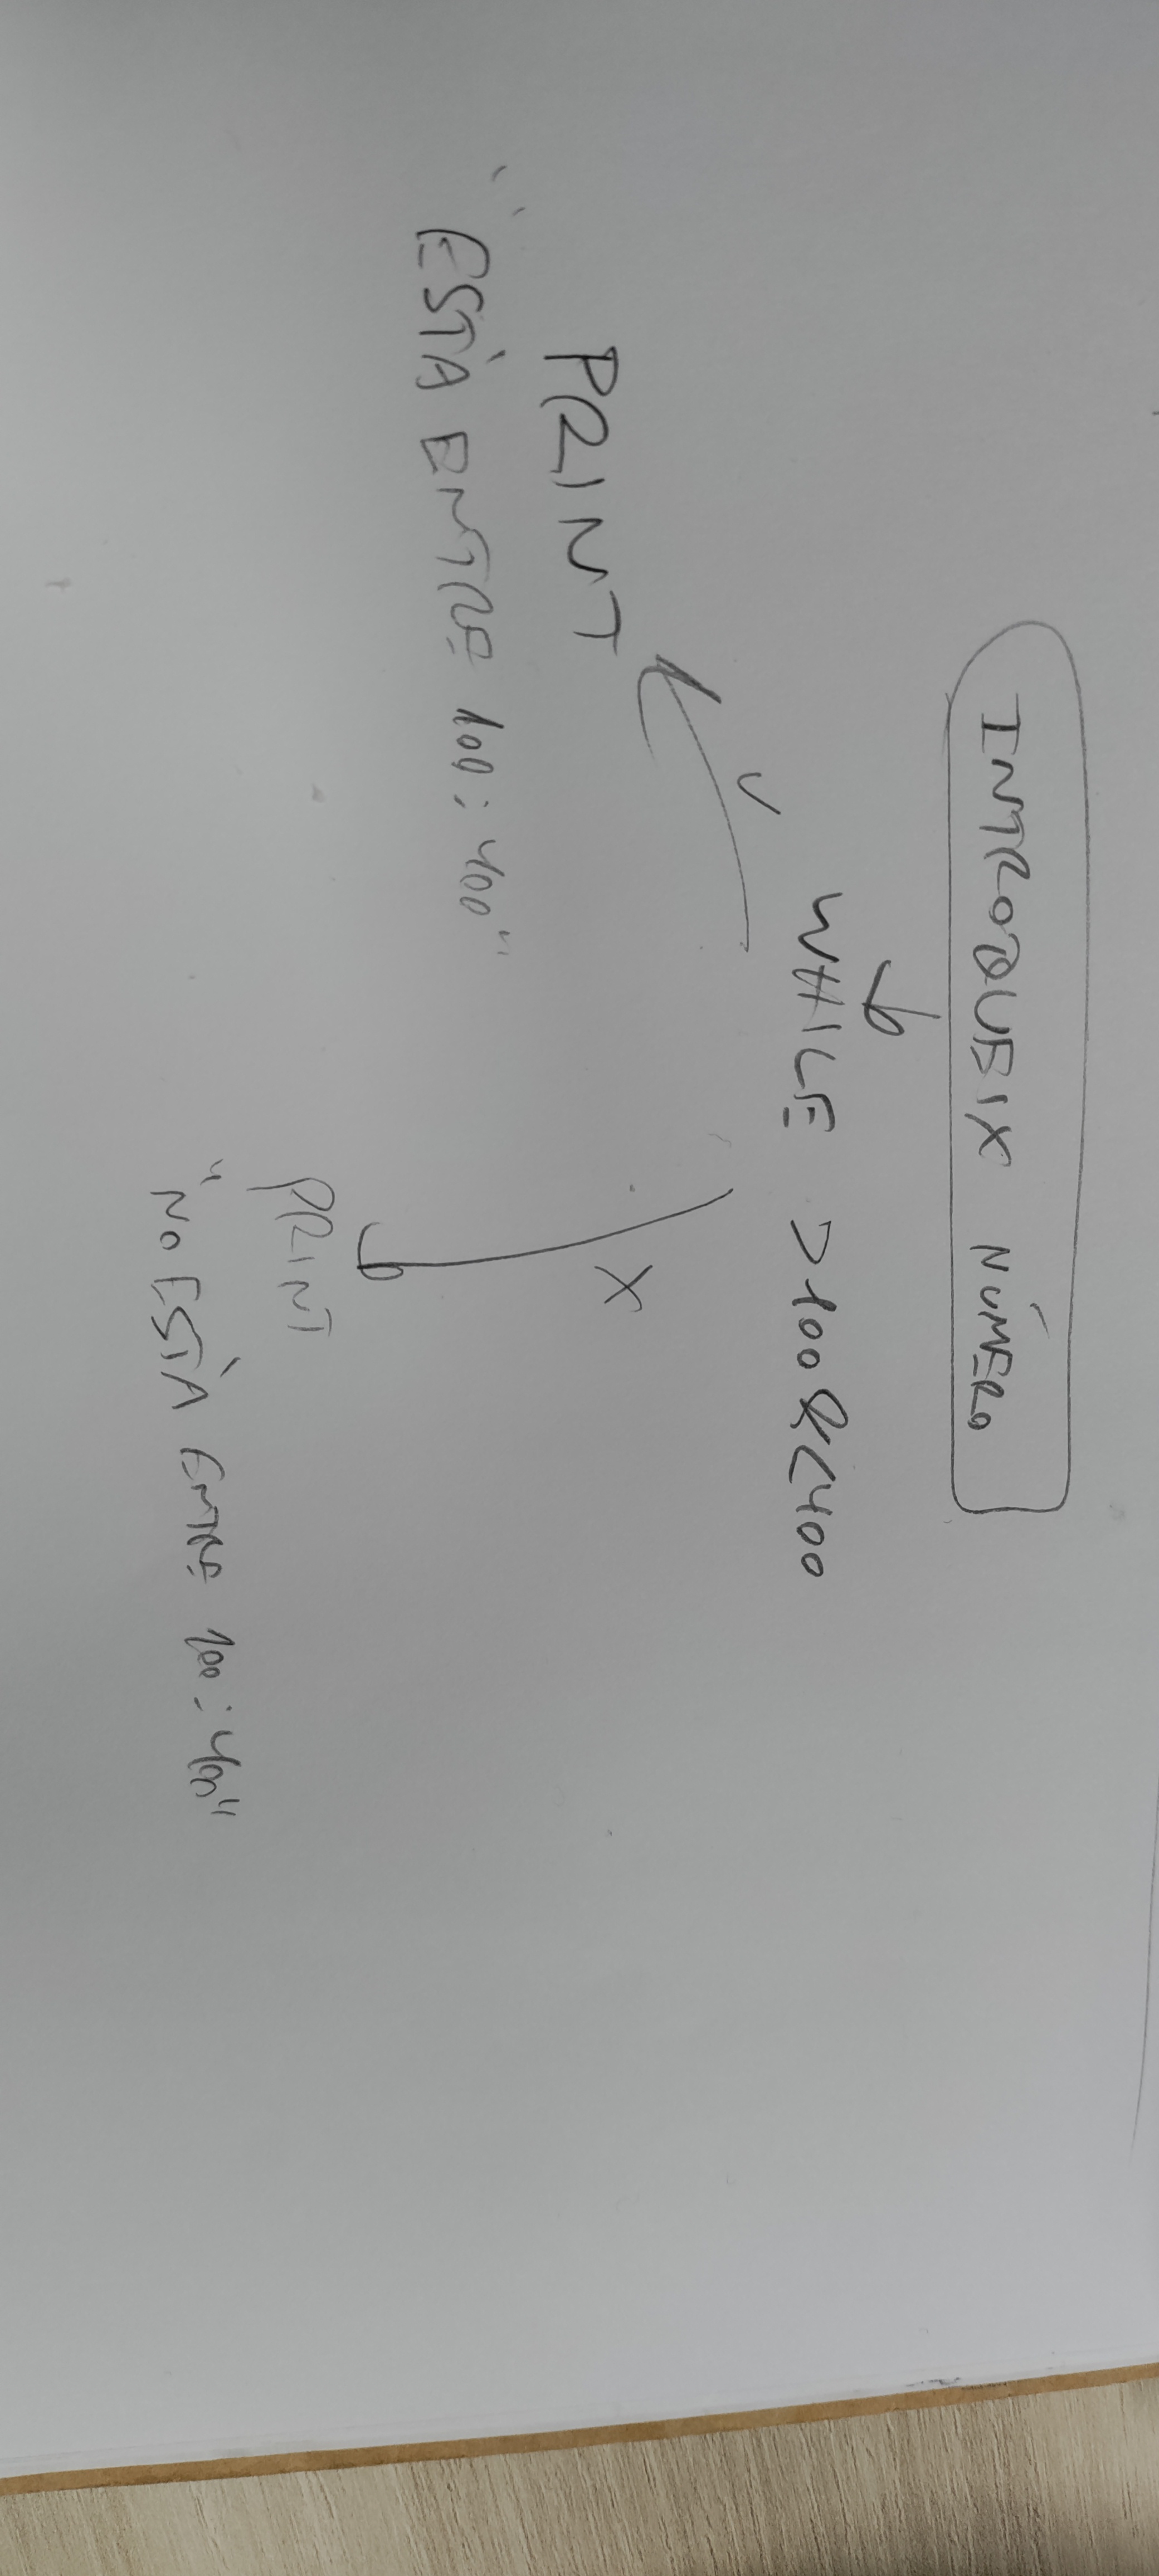 INTRODUEIX NÚMERO
WHILE >100&<400
V
X
PRINT
"ESTÀ ENTRE 100:400"
PRINT
"NO ESTÀ ENTRE 100:400"